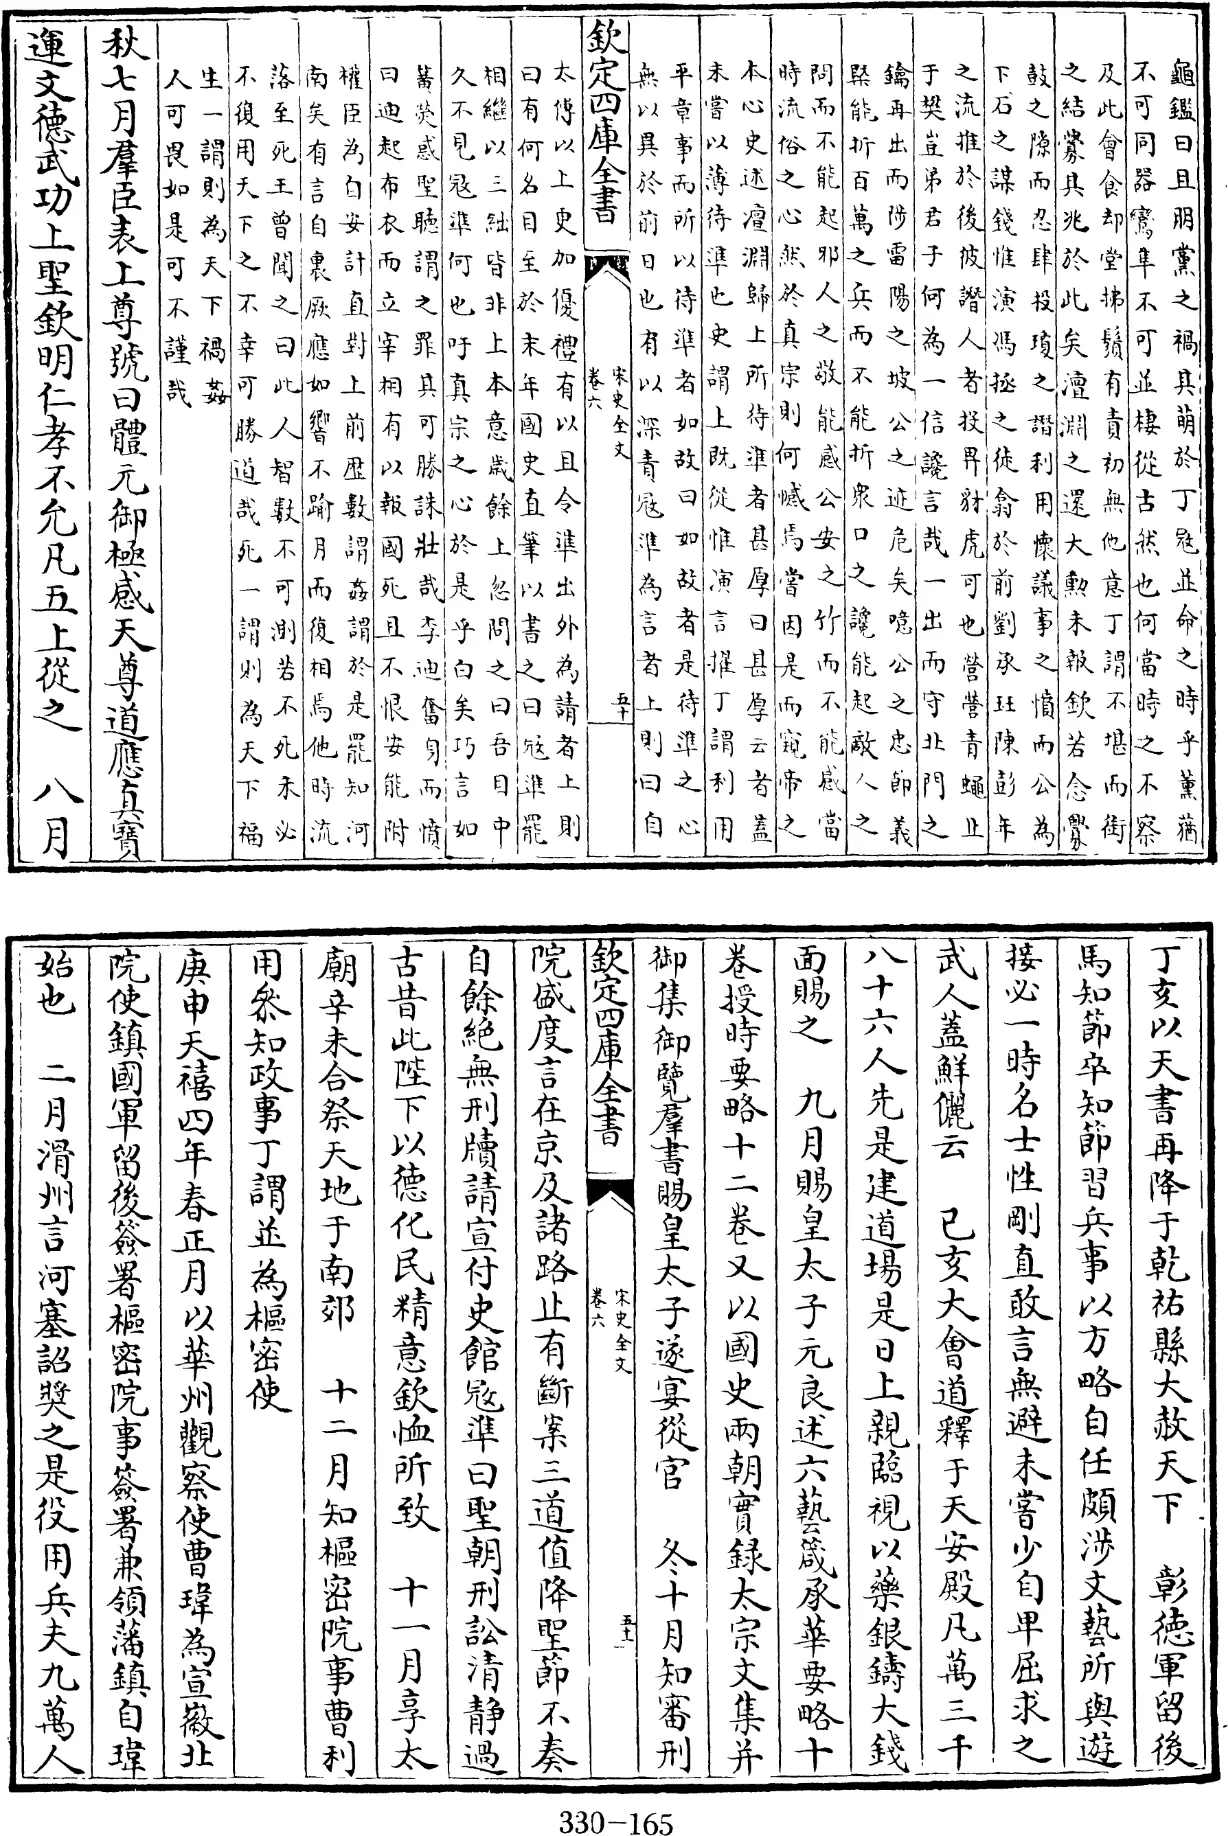 龜鑑曰且朋黨之禍其萌於丁冦並命之時乎薰蕕
不可同器鸞隼不可並棲從古然也何當時之不察
及此會食却堂拂鬚有責初無他意丁謂不堪而銜
之結釁其兆於此矣澶淵之還大勲未報欽若念釁
鼓之隙而忍肆投瓊之譖利用懷議事之憤而公為
下石之謀錢惟演馮拯之徒翕於前劉承珪陳彭年
之流推於後彼譖人者投畀豺虎可也營營青蠅止
于樊豈弟君子何為一信讒言哉一出而守北門之
鑰再出而陟雷陽之坡公之迹危矣噫公之忠節義
槩能折百萬之兵而不能折衆口之讒能起敵人之
問而不能起邪人之敬能感公安之竹而不能感當
時流俗之心然於真宗則何憾焉嘗因是而窺帝之
本心史述澶淵歸上所待準者甚厚曰甚厚云者蓋
未嘗以薄待準也史謂上既從惟演言擢丁謂利用
平章事而所以待準者如故曰如故者是待準之心
無以異於前日也有以深責冦準為言者上則曰自
欽定四庫全書
宋史全文
卷六
五十
太傅以上更加優禮有以且令準出外為請者上則
曰有何名目至於末年國史直筆以書之曰冦準罷
相繼以三絀皆非上本意歲餘上忽問之曰吾目中
久不見冦準何也吁真宗之心於是乎白矣巧言如
簧熒惑聖聽謂之罪其可勝誅壯哉李迪奮身而憤
曰迪起布衣而立宰相有以報國死且不恨安能附
權臣為自安計直對上前歴數謂姦謂於是罷知河
南矣有言自裏厥應如響不踰月而復相焉他時流
落至死王曾聞之曰此人智數不可測若不死未必
不復用天下之不幸可勝道哉死一謂則為天下福
生一謂則為天下禍姦
人可畏如是可不謹哉
秋七月羣臣表上尊號曰體元御極感天尊道應真寳
運文德武功上聖欽明仁孝不允凡五上從之　八月
丁亥以天書再降于乾祐縣大赦天下　彰徳軍留後
馬知節卒知節習兵事以方略自任頗涉文藝所與遊
接必一時名士性剛直敢言無避未嘗少自卑屈求之
武人蓋鮮儷云　己亥大會道釋于天安殿凡萬三千
八十六人先是建道場是日上親臨視以藥銀鑄大錢
面賜之　九月賜皇太子元良述六藝箴承華要略十
卷授時要略十二卷又以國史兩朝實録太宗文集并
御集御覽羣書賜皇太子遂宴從官　冬十月知審刑
欽定四庫全書
宋史全文
卷六
五十一
院盛度言在京及諸路止有斷案三道值降聖節不奏
自餘絶無刑牘請宣付史館冦準曰聖朝刑訟清静過
古昔此陛下以德化民精意欽恤所致　十一月享太
廟辛未合祭天地于南郊　十二月知樞密院事曹利
用叅知政事丁謂並為樞密使
庚申天禧四年春正月以華州觀察使曹瑋為宣徽北
院使鎮國軍留後簽署樞密院事簽署兼領藩鎮自瑋
始也　二月滑州言河塞詔奬之是役用兵夫九萬人
330-165